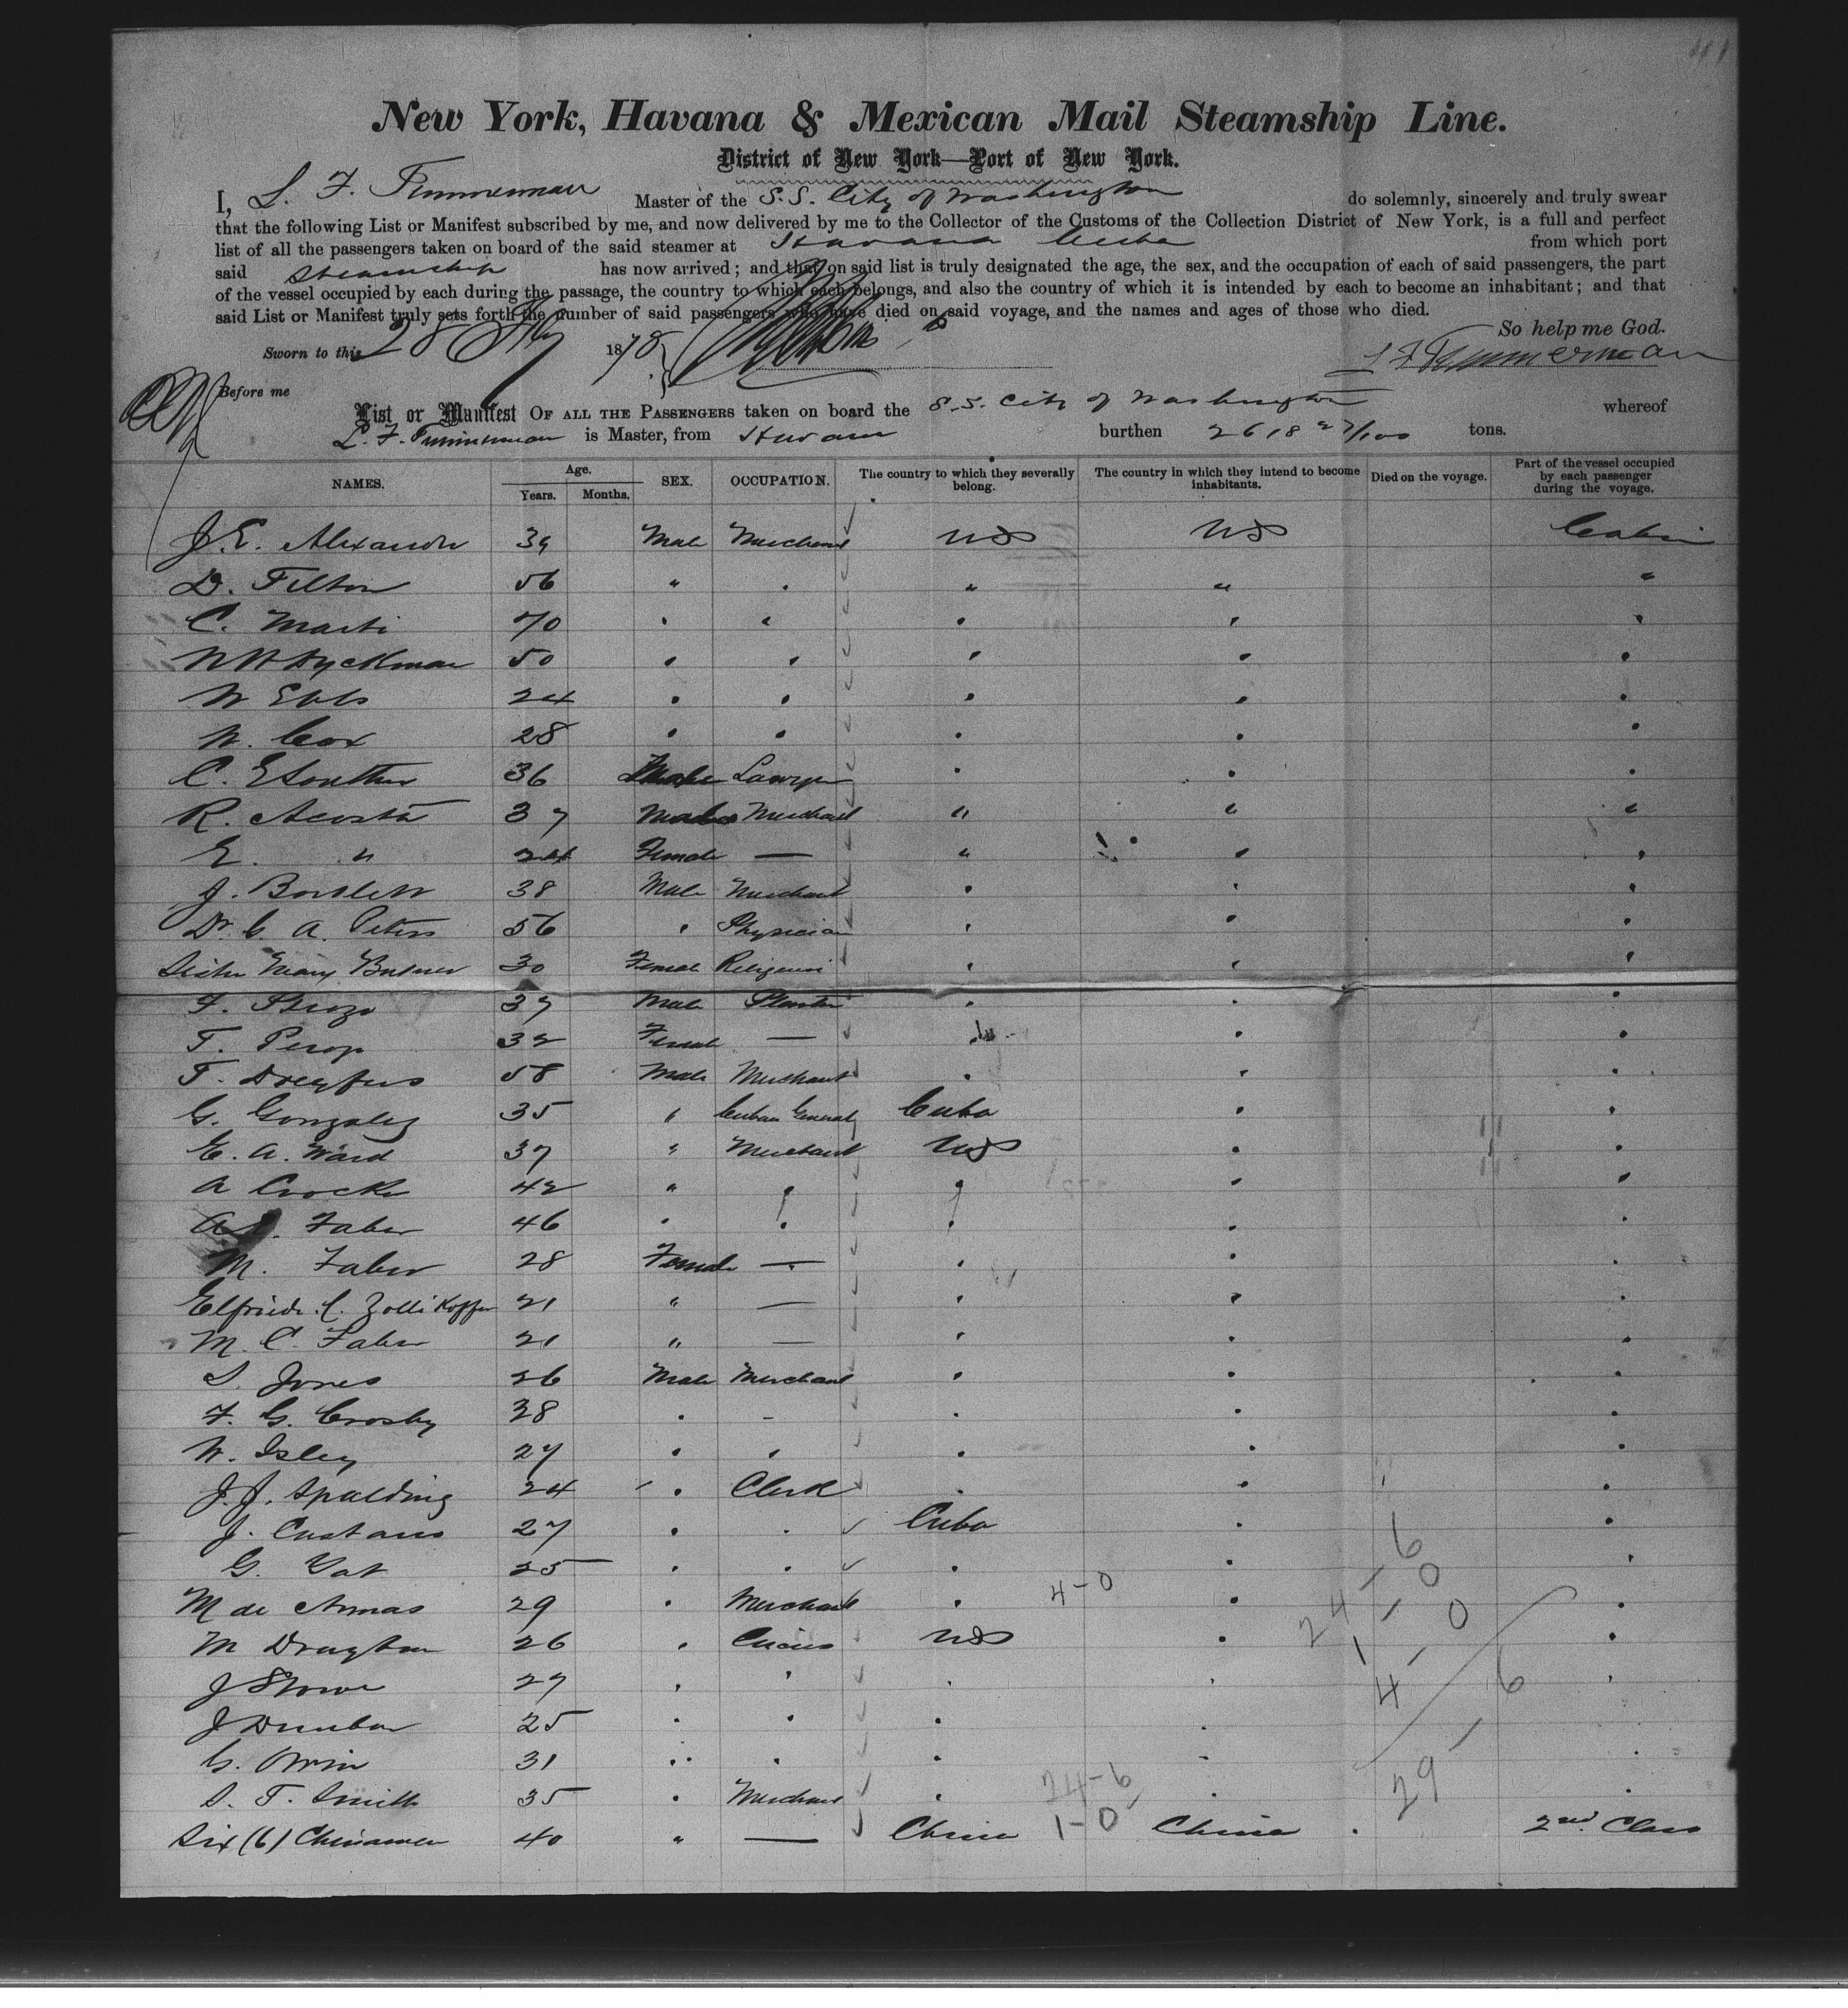 New York, Havana & Mexican Mail Steamship Line.
District of New York—Port of New York.
I, L. F. Timmerman Master of the S.S. City of Washington do solemnly, sincerely and truly swear
that the following List or Manifest subscribed by me, and now delivered by me to the Collector of the Customs of the Collection District of New York, is a full and perfect
list of all the passengers taken on board of the said steamer at Havana Cuba from which port
said Steamship has now arrived; and that on said list is truly designated the age, the sex, and the occupation of each of said passengers, the part
of the vessel occupied by each during the passage, the country to which each belongs, and also the country of which it is intended by each to become an inhabitant; and that
said List or Manifest truly sets forth the number of said passengers who have died on said voyage, and the names and ages of those who died.
So help me God.
Sworn to this 28 1878 L F Timmerman
Before me
List or Manifest OF ALL THE PASSENGERS taken on board the S.S. City of Washington whereof
L. F. Timmerman is Master, from Havana burthen 2618 27/100 tons.
NAMES. Age. Years. Months. SEX. OCCUPATION. The country to which they severally belong. The country in which they intend to become inhabitants. Died on the voyage. Part of the vessel occupied by each passenger during the voyage.
J. E. Alexander 39 Male Merchant US US Cabin
D. Felton 56 " " " " "
C. Marti 70 " " " " "
Dyckman 50 " " " " "
W 24 " " " " "
W. Cox 28 " " " " "
C. E Souther 36 Male Lawyer " " "
R. Acosta 37 Male Merchant " " "
E. " 24 Female — " " "
J. Bartlett 38 Male Merchant " " "
Dr. C. A. Peters 56 " Physician " " "
Sister Mary 30 Female " " "
F. 37 Male Planter " " "
T. 32 Female — " " "
T. Dreyfus 58 Male Merchant " " "
G. Gonzalez 35 " Cuban General Cuba " "
E. A. Ward 37 " Merchant US " "
A Crocker 42 " " " " "
A Faber 46 " " " " "
M. Faber 28 Female — " " "
Elfriede C. Zollikoffer 21 " — " " "
M. C. Faber 21 " — " " "
S. Jones 26 Male Merchant " " "
F. G. Crosby 38 " " " " "
W. Isley 27 " " " " "
J. J. Spalding 24 " Clerk " " "
J. 27 " " Cuba " "
G. 25 " " " " "
M de Armas 29 " Merchant " 4-0 " "
M Drayton 26 " Circus US " "
J Stowe 27 " " " " "
J Dunbar 25 " " " " "
G. Orrin 31 " " " " "
S. T. Smith 35 " Merchant " 24-6 " "
Six (6) Chinamen 40 " — China 1-0 China 2nd Class
6
0
24 - 0
1 -
4 6
29